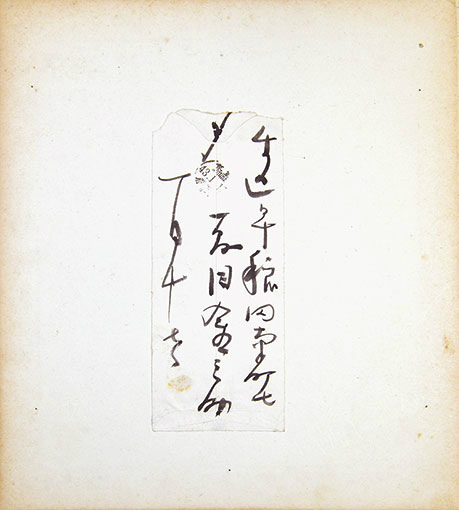 牛込早稲田南町七
夏目金之助
月十